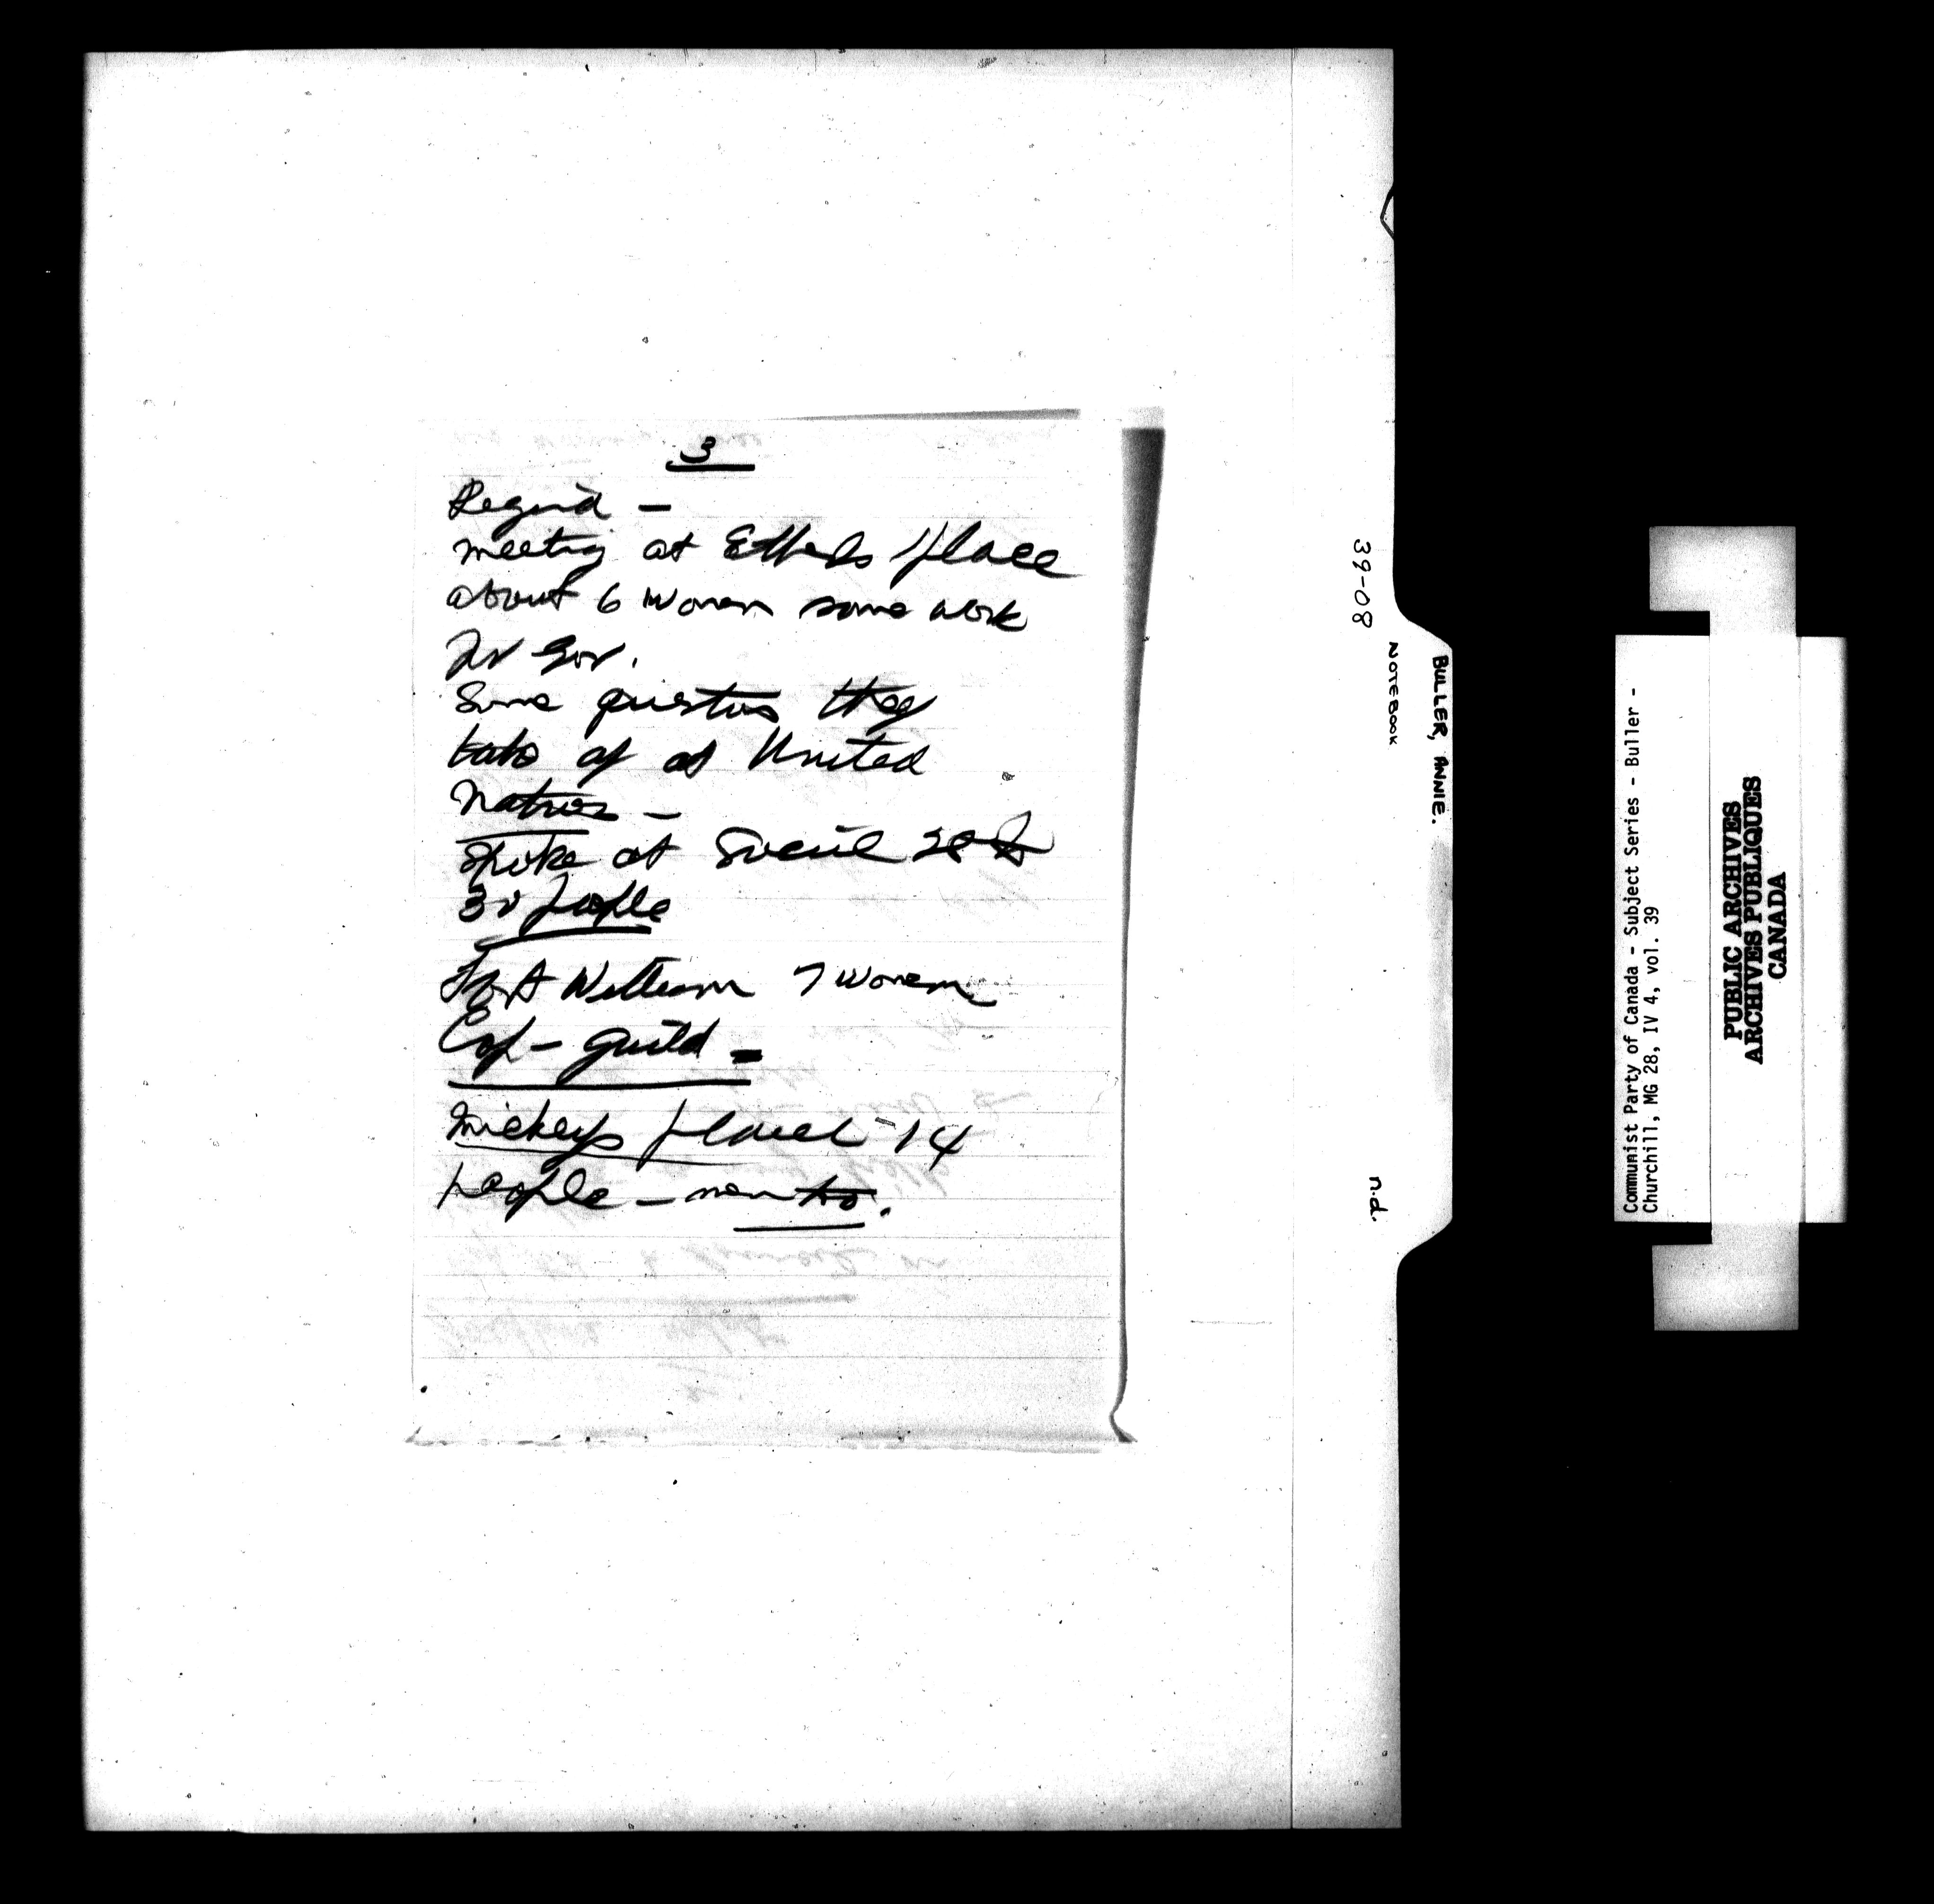 3
Regina -
meeting at Ethels place
about 6 women some work
for Gov.
Some questions they
take up at United
Nations -
spoke at Social 28 to
30 people
Fort William 7 women
Cop - guild -
Mickeys place - 14
people - men too.
39-08
NOTEBOOK
n.d.
BULLER, ANNIE.
Communist Party of Canada - Subject Series - Buller -
Churchill, MG 28, IV 4, vol. 39
PUBLIC ARCHIVES
ARCHIVES PUBLIQUES
CANADA